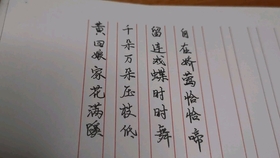 黄四娘家花满蹊
千朵万朵压枝低
留连戏蝶时时舞
自在娇莺恰恰啼